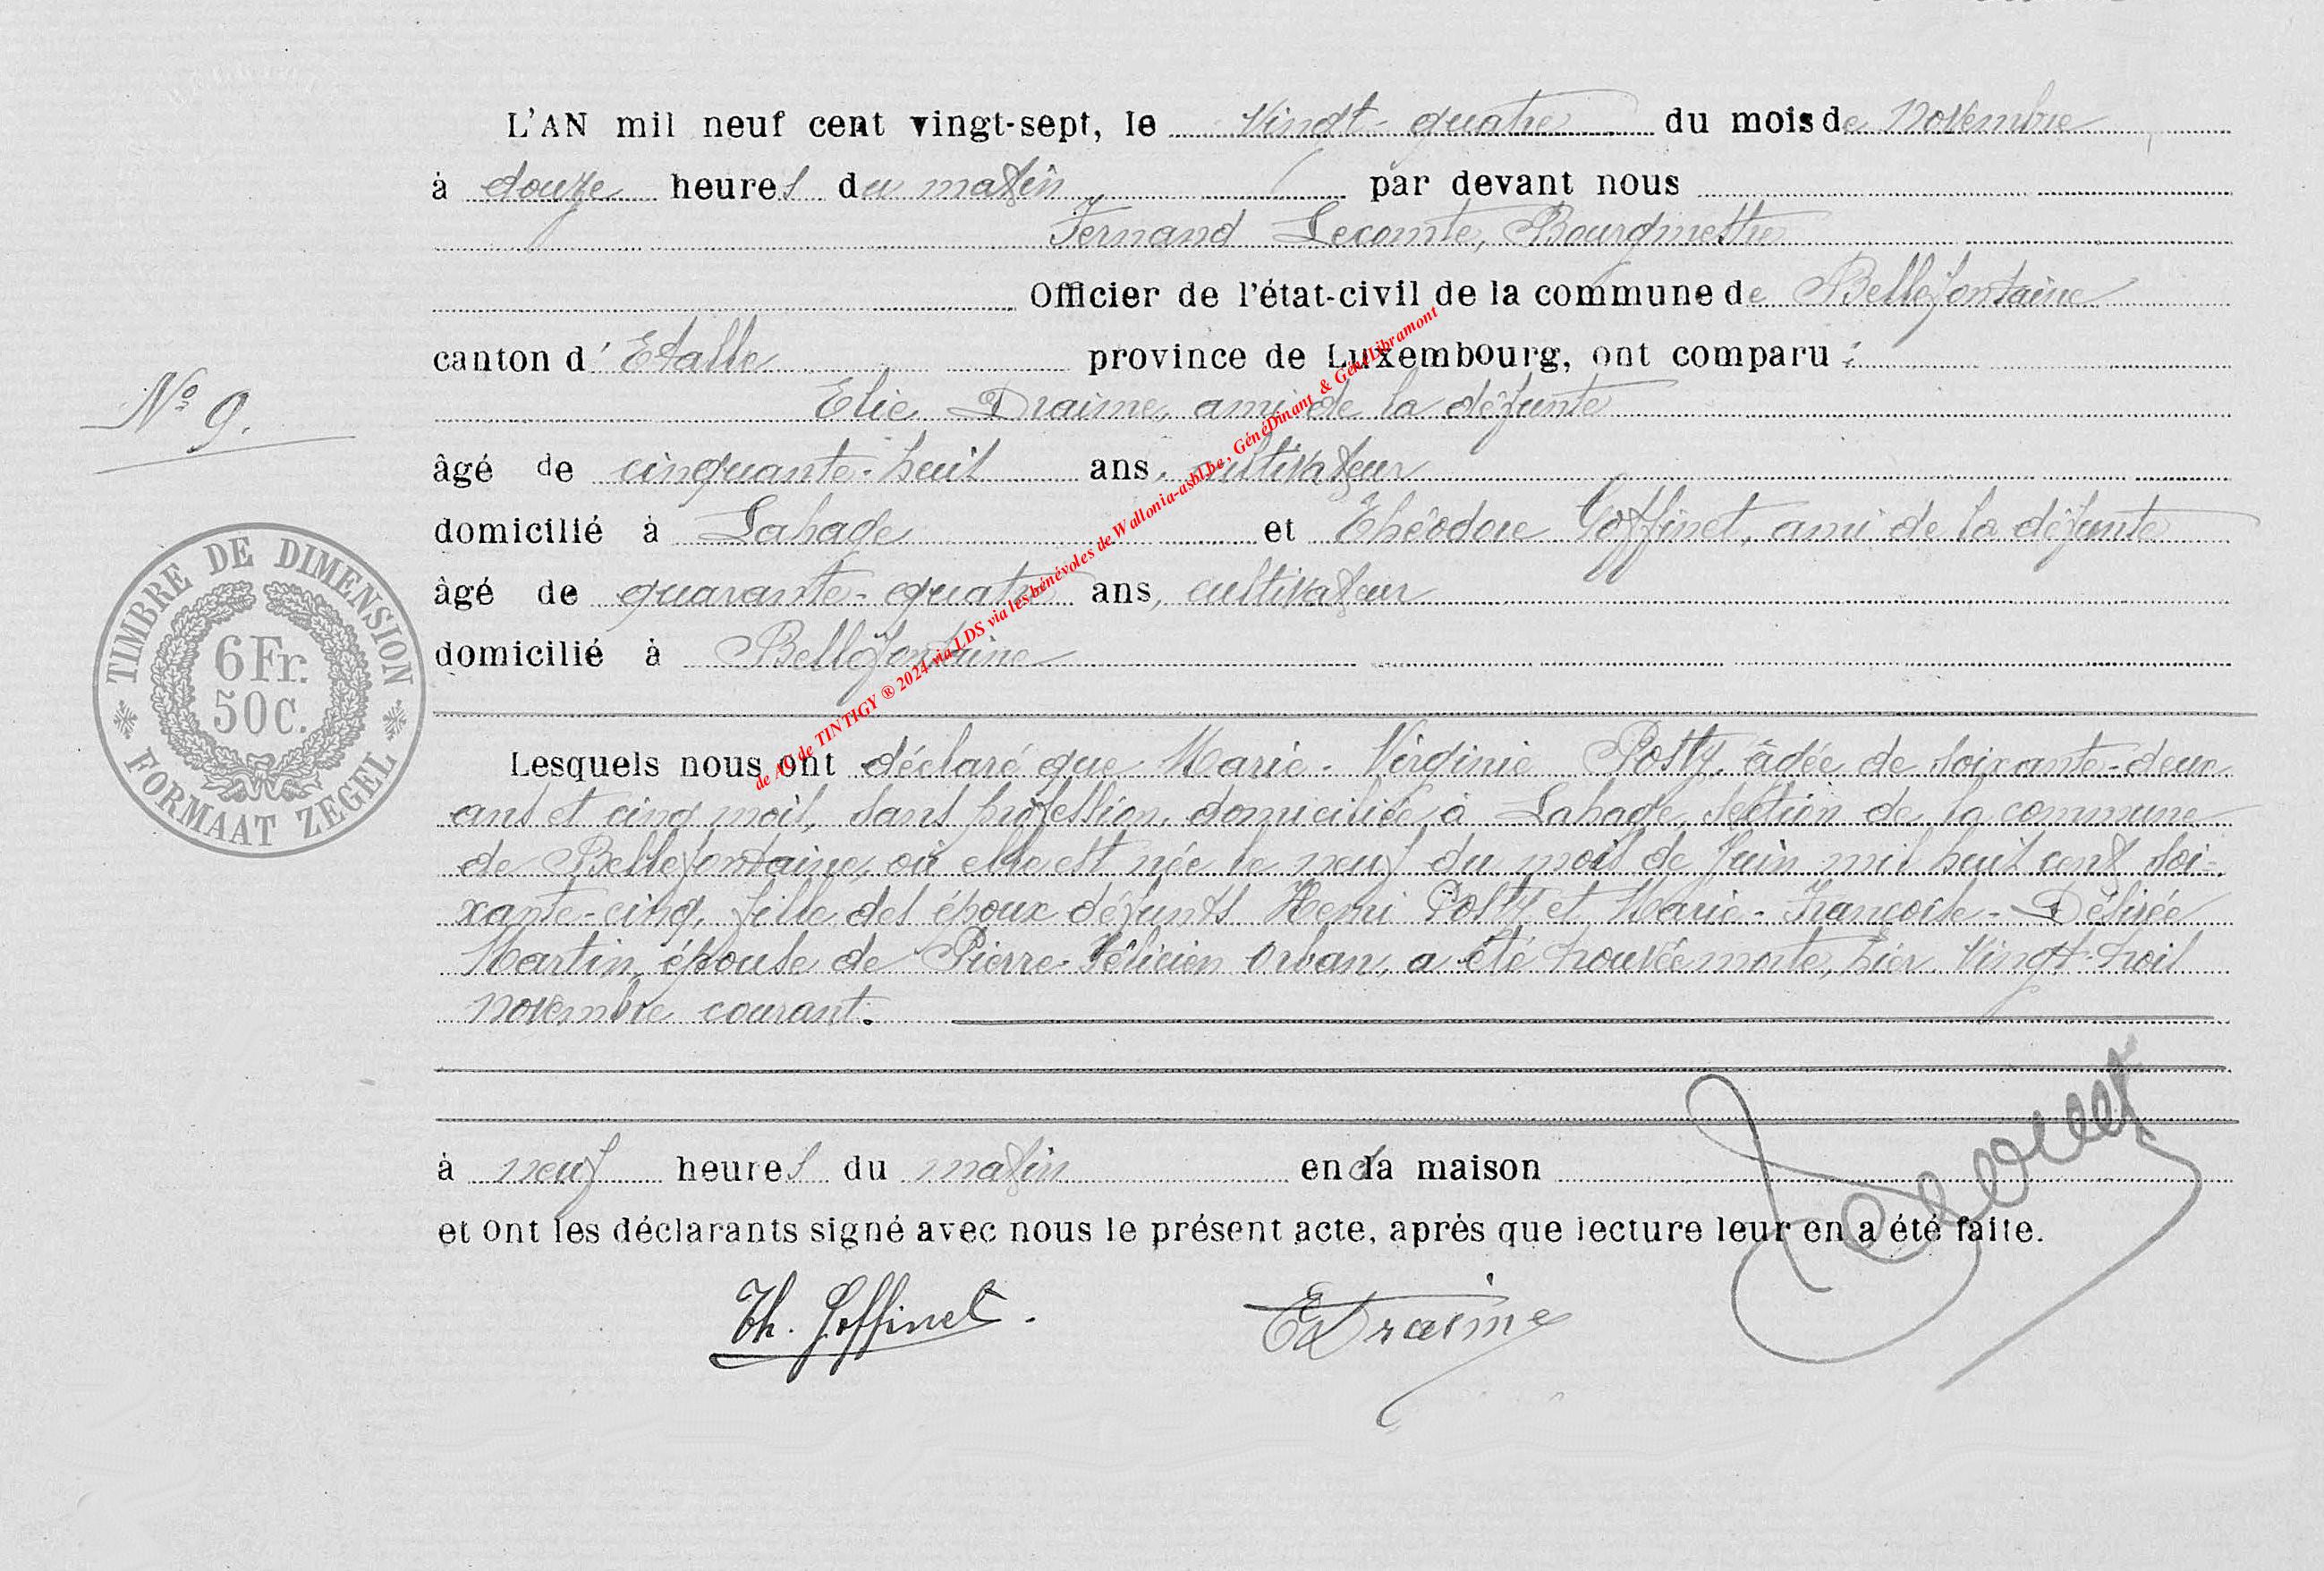 L'AN mil neuf cent vingt-sept, le vingt-quatre du mois de Novembre
à douze heures du matin par devant nous
Fernand Lecomte, Bourgmestre
Officier de l'état-civil de la commune de Bellefontaine
canton d'Etalle province de Luxembourg, ont comparu :
Nº 9.
Elie Draime, ami de la défunte
âgé de cinquante-huit ans, cultivateur
domicilié à Lahage et Théodore Goffinet, ami de la défunte
âgé de quarante-quatre ans, cultivateur
domicilié à Bellefontaine
TIMBRE DE DIMENSION
6 Fr.
50 C.
FORMAAT ZEGEL
Lesquels nous ont déclaré que Marie-Virginie Posty, âgée de soixante-deux
ans et cinq mois, sans profession, domiciliée à Lahage, section de la commune
de Bellefontaine, où elle est née le neuf du mois de Juin mil huit cent soi-
xante-cinq, fille des époux défunts Henri Posty et Marie-Françoise-Désirée
Martin, épouse de Pierre-Félicien Orban, a été trouvée morte, hier vingt-trois
novembre courant.
à neuf heures du matin en sa maison
et ont les déclarants signé avec nous le présent acte, après que lecture leur en a été faite.
Th. Goffinet. E Draime
de AC de TINTIGY ® 2024 via LDS via les bénévoles de Wallonia-asbl.be, GénéDinant & GénéLibramont